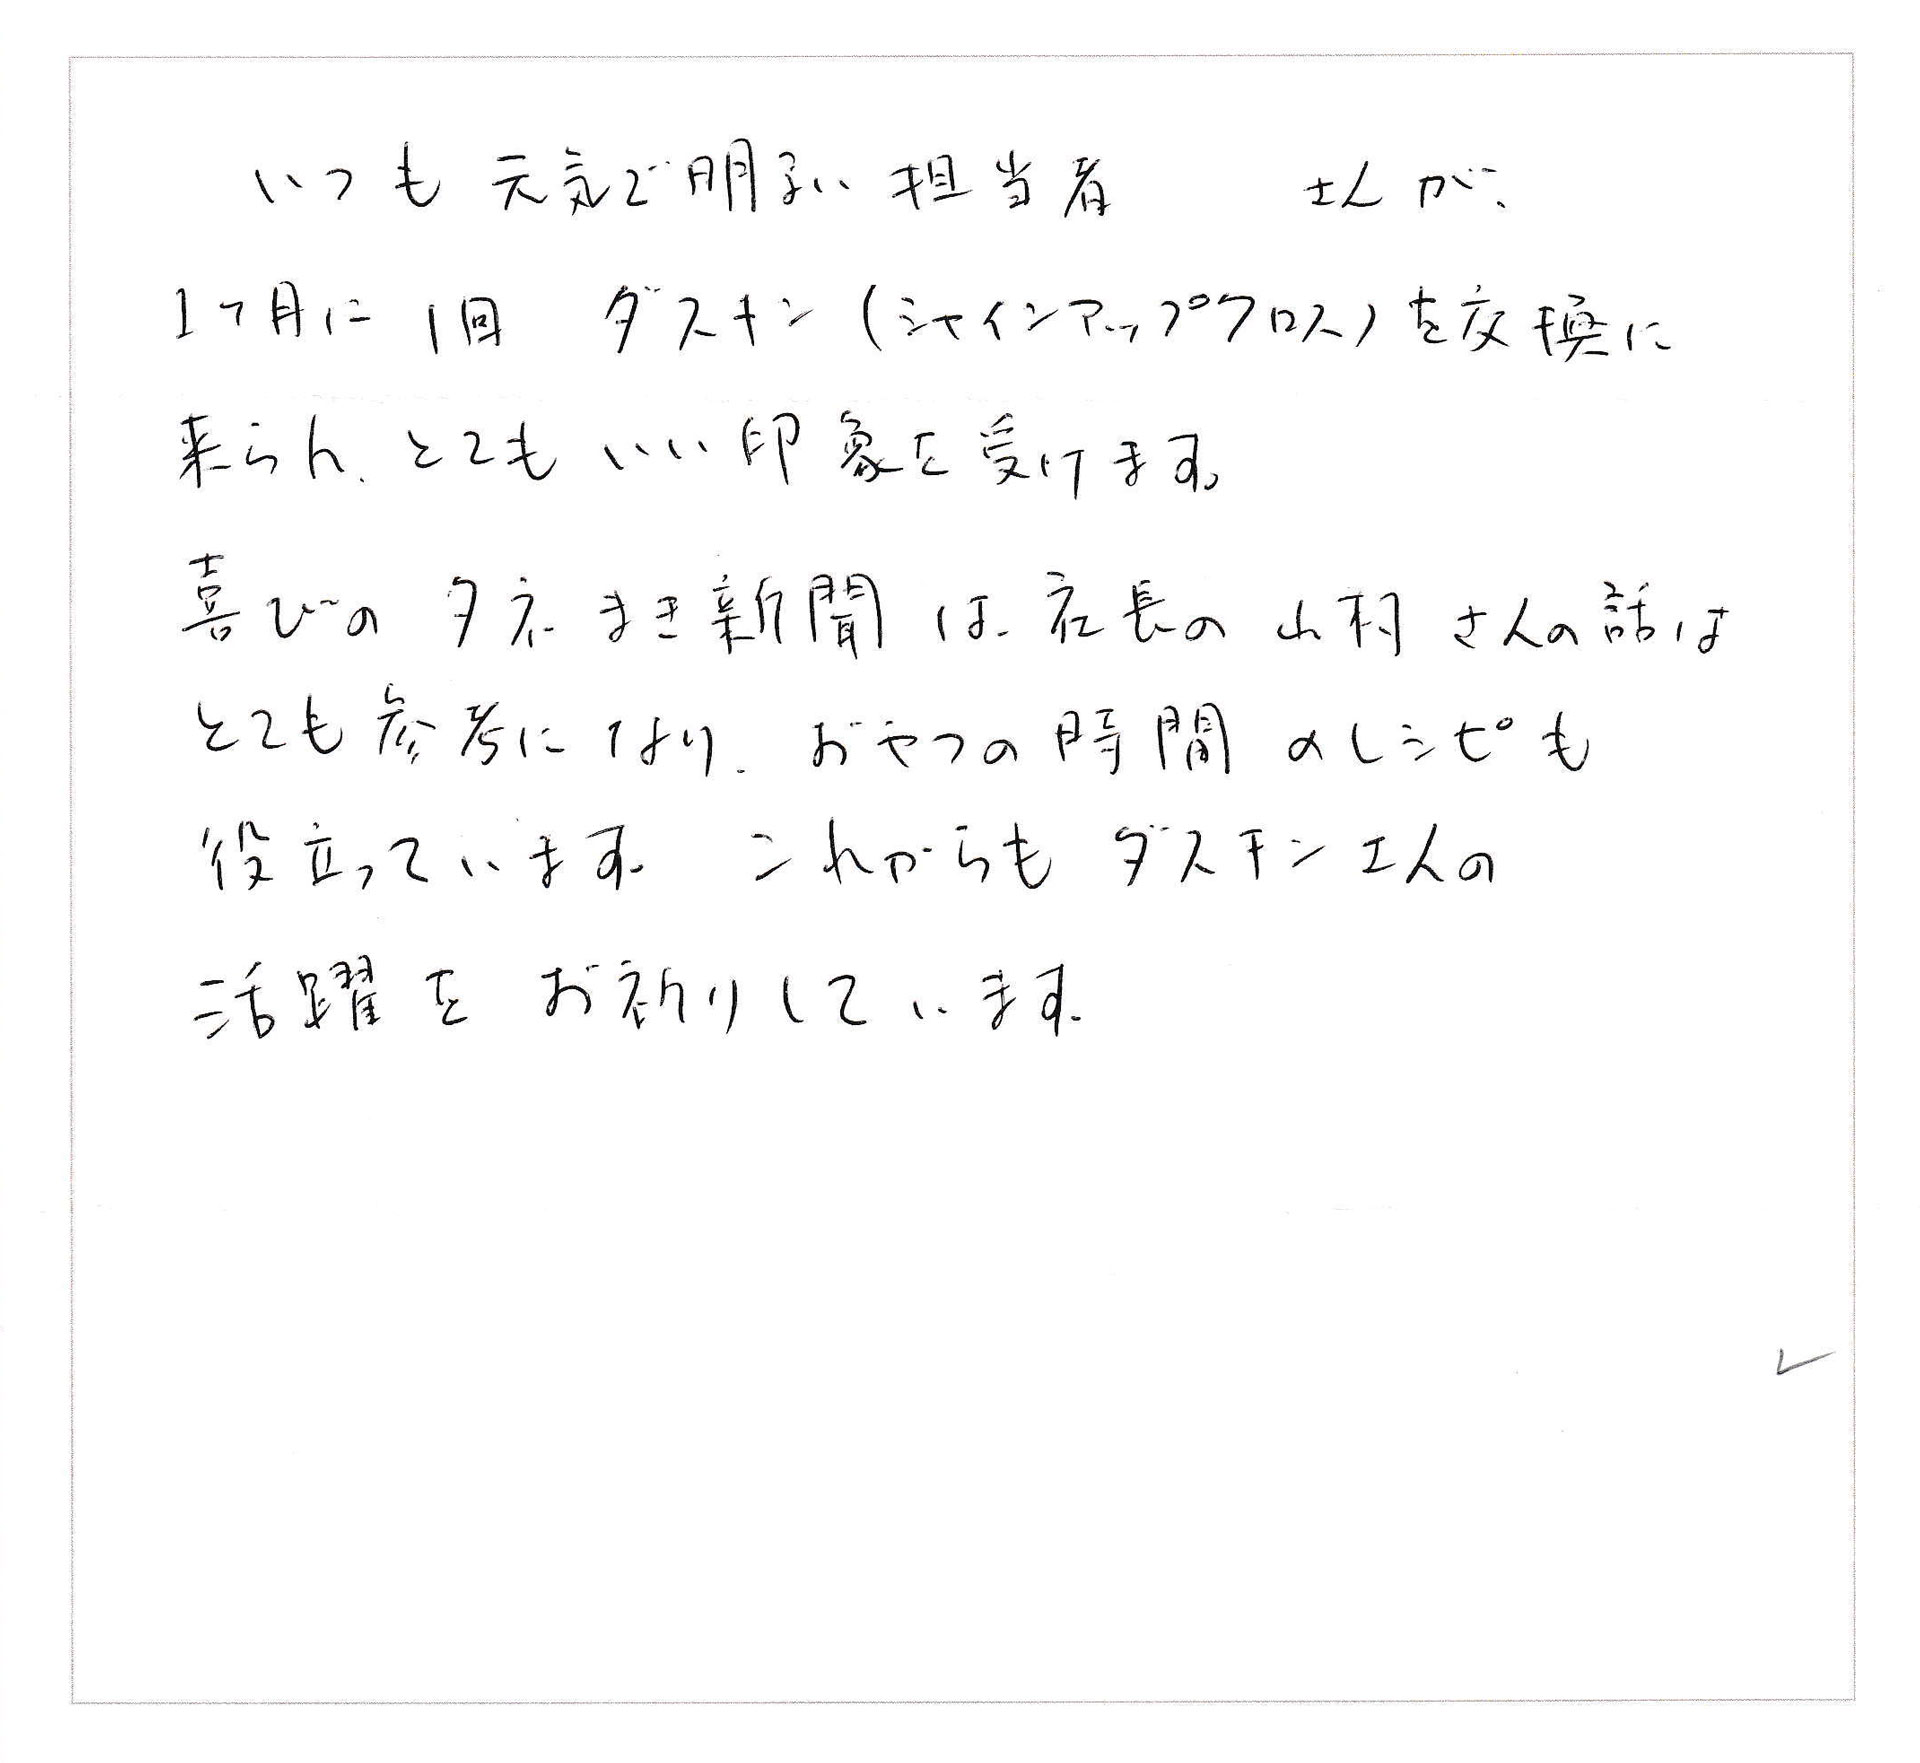 いつも元気で明るい担当者 さんが、
1ヶ月に1回 ダスキン(シャインアップクロス)を交換に
来られ、とてもいい印象を受けます。
喜びのタネまき新聞は、社長の山村さんの話は
とても参考になり、おやつの時間のレシピも
役立っています。 これからもダスキンさんの
活躍をお祈りしています。